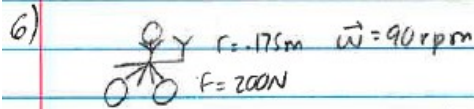 6) r=.175m ω⃗=90rpm
F=200N